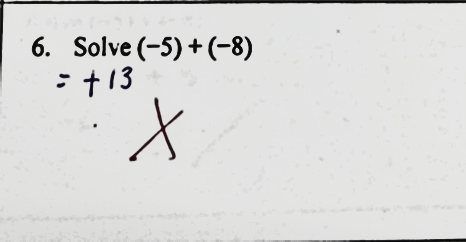 6. Solve (−5) + (−8)
= +13